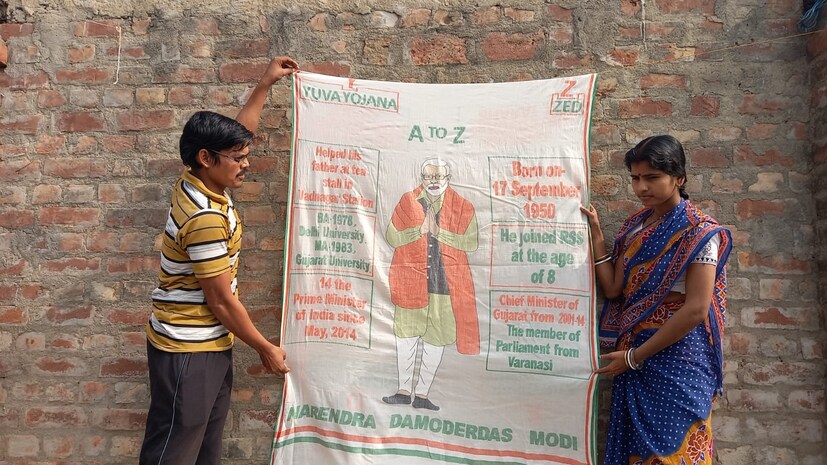 YUVAYOJANA
Z
ZED
A TO Z
Helpnd his
father at tea
stall in
Vadnagar Station
BA-1978,
Delhi University,
MA-1983,
Gujarat University
14 the
Prime Minister
of India since
May, 2014
Born on-
17 September
1950
He joined RSS
at the age
of 8
Chief Minister of
Gujarat from-2001-14
The member of
Parliament from
Varanasi
NARENDRA DAMODERDAS MODI